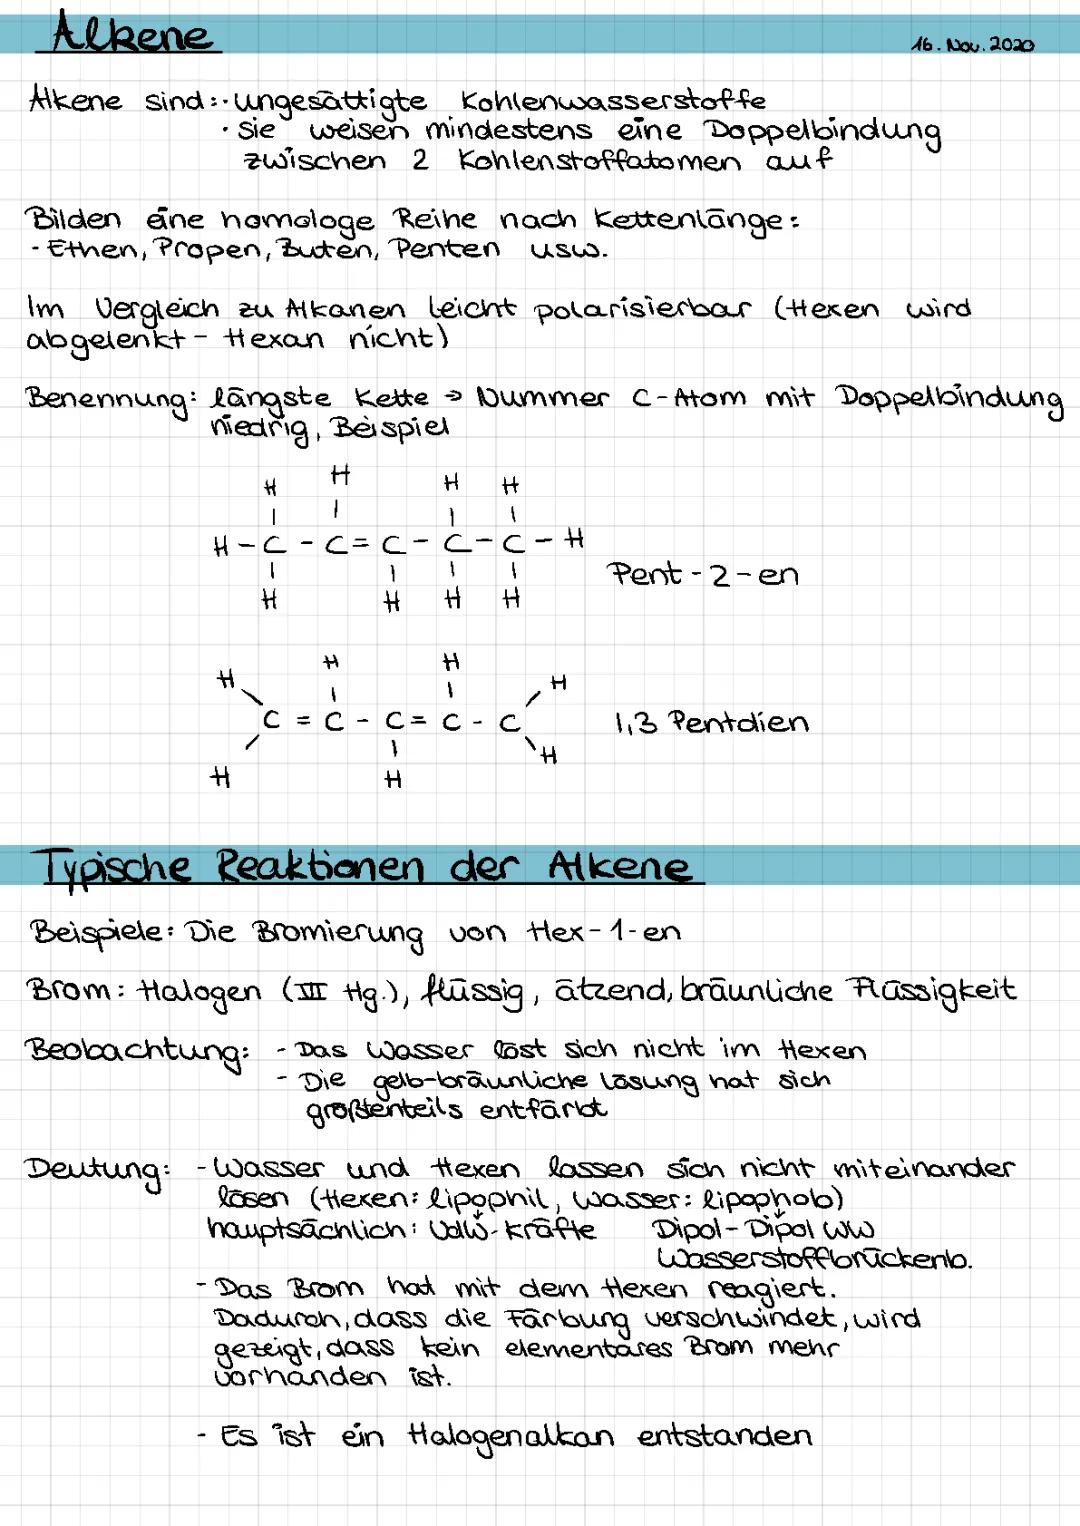 Alkene
16. Nov. 2020
Alkene sind: · ungesättigte Kohlenwasserstoffe
· sie weisen mindestens eine Doppelbindung
zwischen 2 Kohlenstoffatomen auf
Bilden eine homologe Reihe nach Kettenlänge:
- Ethen, Propen, Buten, Penten usw.
Im Vergleich zu Alkanen leicht polarisierbar (Hexen wird
abgelenkt - Hexan nicht)
Benennung: längste Kette → Nummer C-Atom mit Doppelbindung
niedrig, Beispiel
H H H H
H - C - C = C - C - C - H
H H H H
Pent-2-en
H H H H
C = C - C = C - C
H H H
1,3 Pentdien
Typische Reaktionen der Alkene
Beispiele: Die Bromierung von Hex-1-en
Brom: Halogen (VII Hg.), flüssig, ätzend, bräunliche Flüssigkeit
Beobachtung: - Das Wasser löst sich nicht im Hexen
- Die gelb-bräunliche Lösung hat sich
größtenteils entfärbt
Deutung: - Wasser und Hexen lassen sich nicht miteinander
lösen (Hexen: lipophil, Wasser: lipophob)
hauptsächlich: VdW-Kräfte Dipol-Dipol WW
Wasserstoffbrückenb.
- Das Brom hat mit dem Hexen reagiert.
Dadurch, dass die Färbung verschwindet, wird
gezeigt, dass kein elementares Brom mehr
vorhanden ist.
- Es ist ein Halogenalkan entstanden